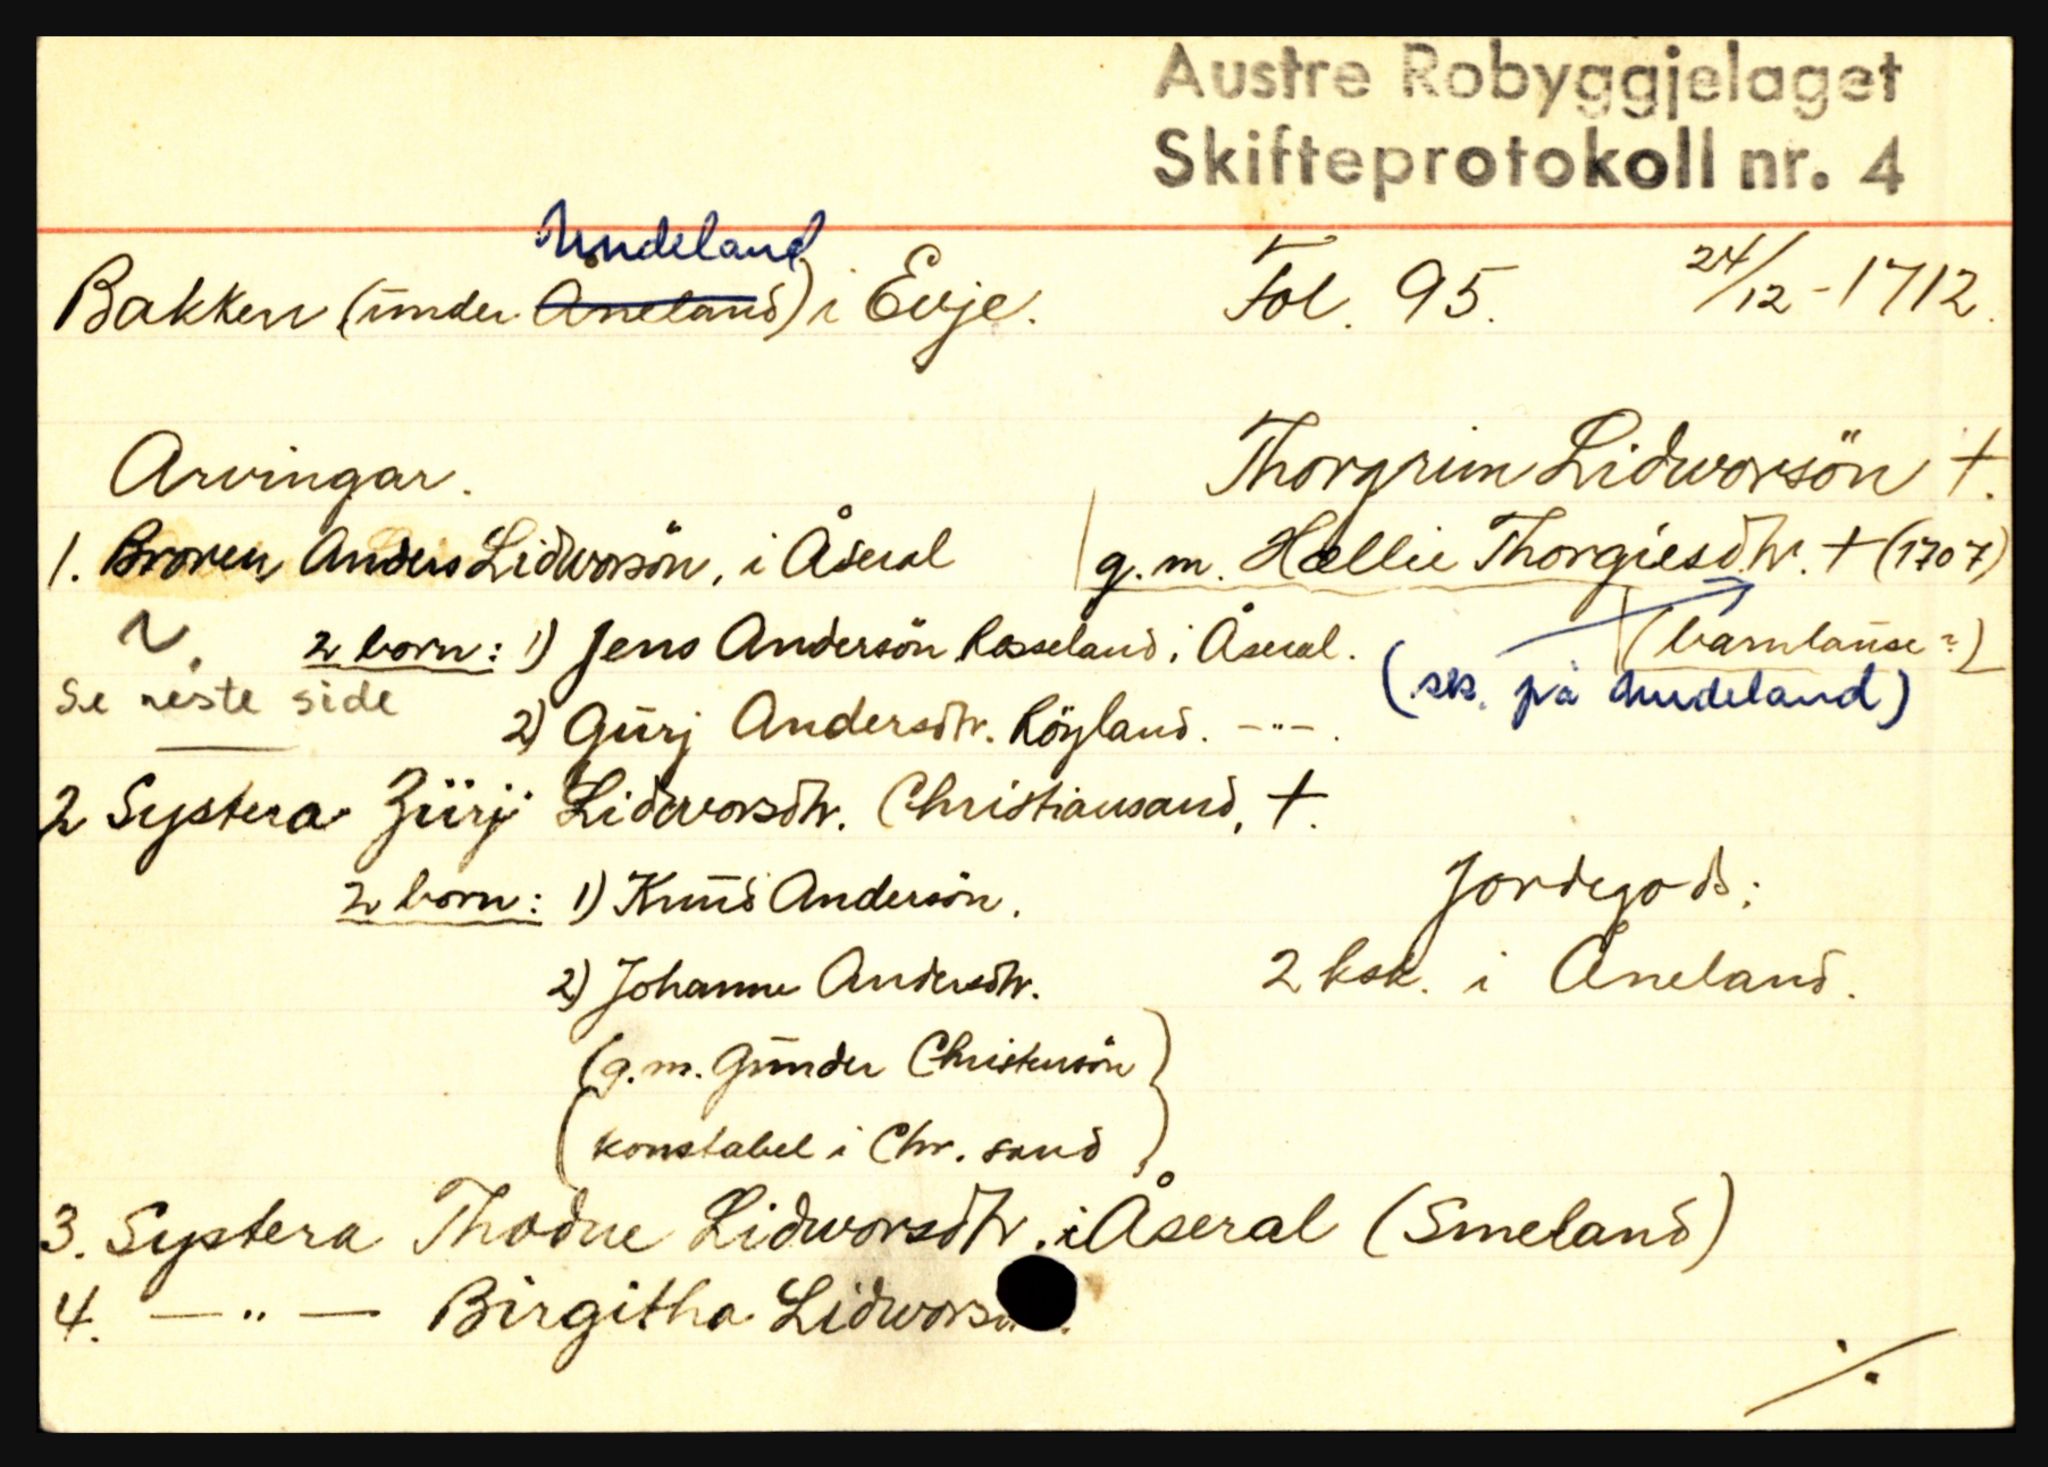 Austre Robyggjelaget
Skifteprotokoll nr. 4
Hudeland
Bakken (under Åneland) i Evje. Fol. 95. 24/12 - 1712.
Arvingar. Thorgrim Lidworsön †.
1. Broren Anders Lidworsön, i Åseral g.m. Hællie Thorgiesdtr. † (1707)
2 born: 1) Jens Andersön Rosseland i Åseral. (barnlause?)
se neste side (sk. på Hudeland)
2) Gurj Andersdtr. Röyland. -"-.
2 Systera Zürj Lidworsdtr. Christiansand, †.
2 born: 1) Knud Andersön. Jordegods:
2) Johanne Andersdtr. 2 ksk. i Åneland.
(g.m. Gunder Christensön)
(konstabel i Chr. sand)
3. Systera Thodne Lidworsdtr. i Åseral (Smeland)
4. — " — Birgitha
./.